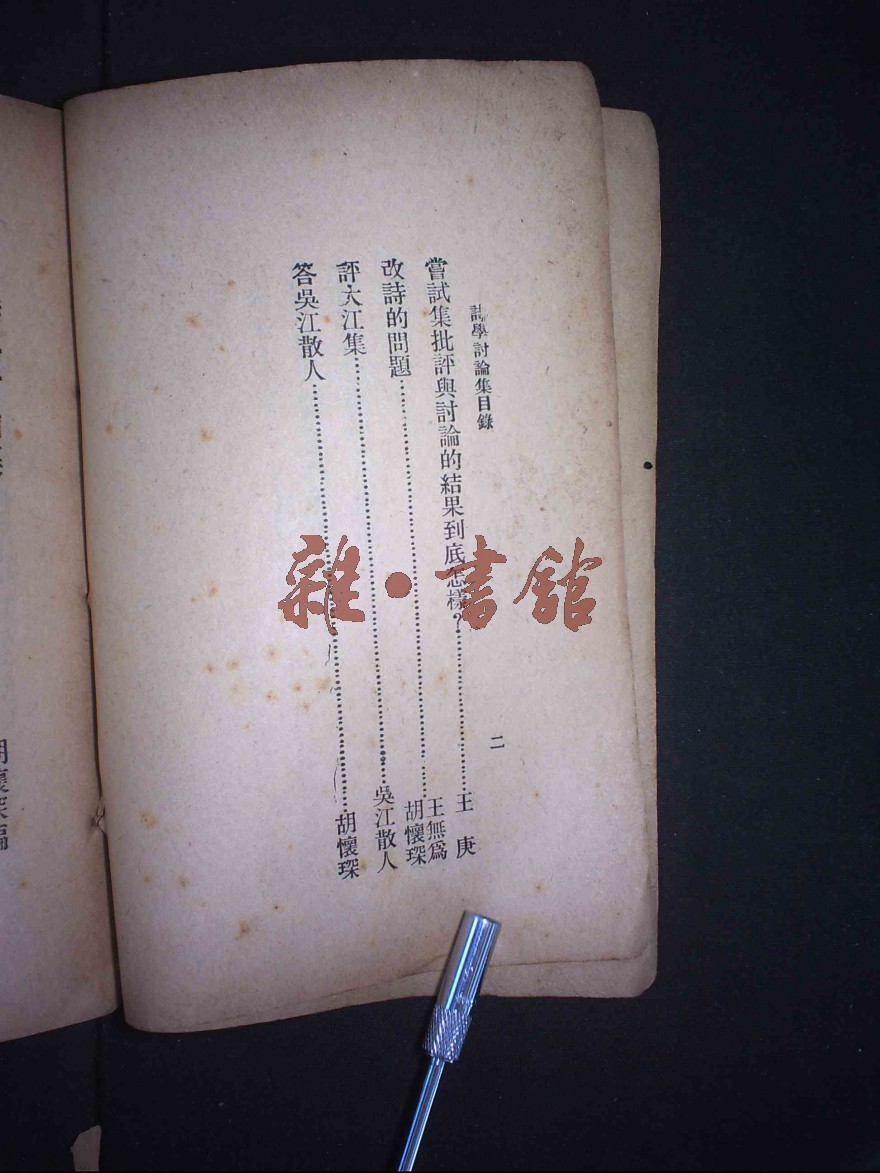 詩學討論集目錄
二
嘗試集批評與討論的結果到底怎樣?……王庚
改詩的問題……王無爲 胡懷琛
評大江集……吳江散人
答吳江散人……胡懷琛
雜·書館